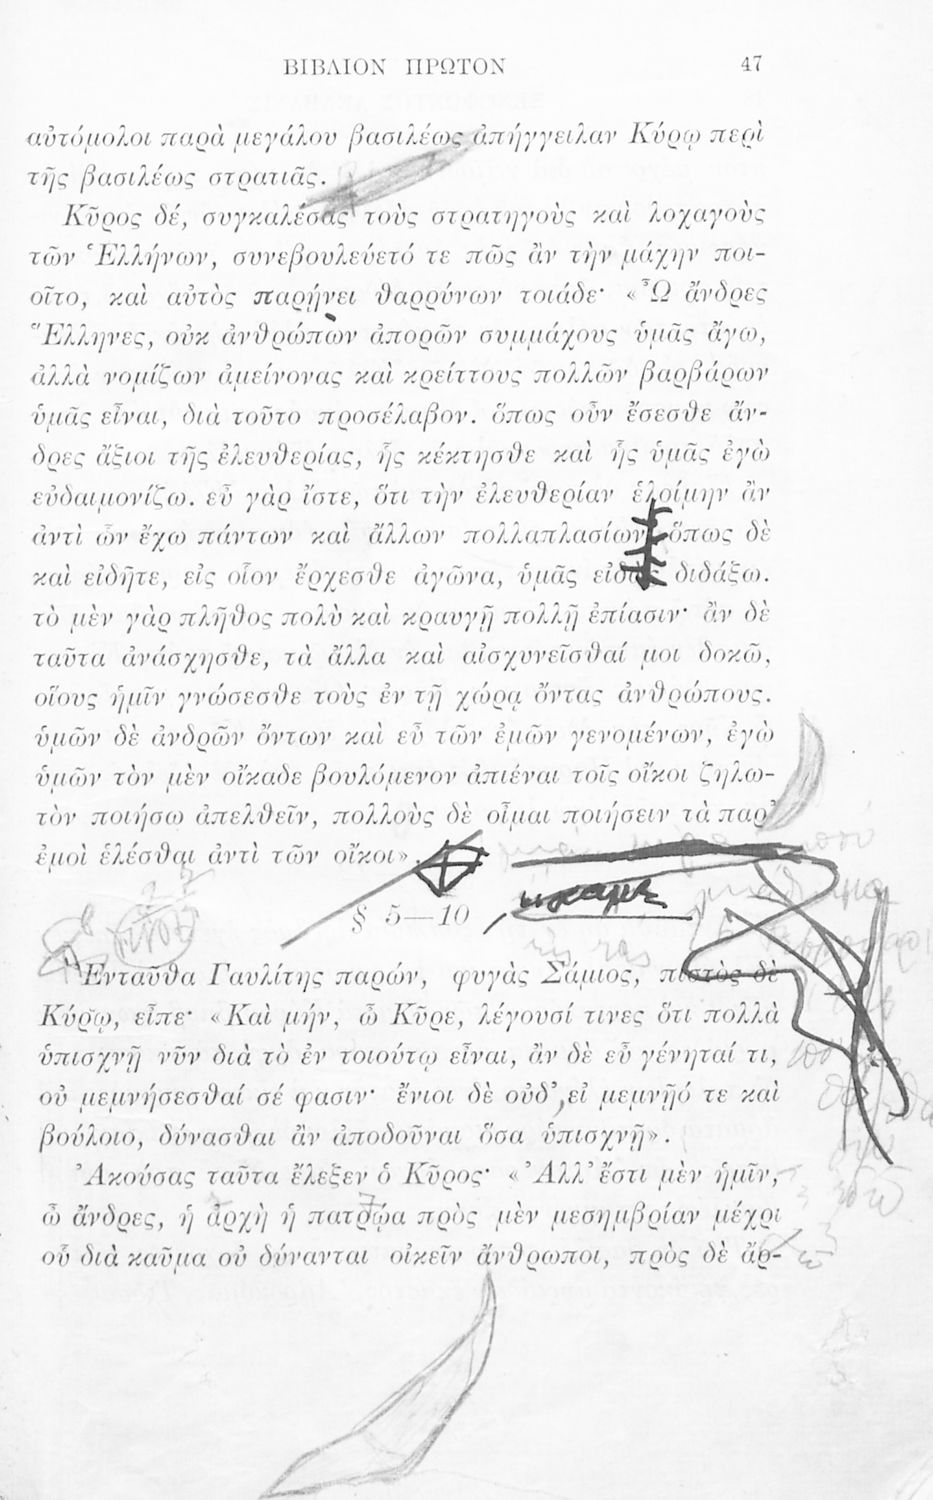 ΒΙΒΛΙΟΝ ΠΡΩΤΟΝ 47
αὐτόμολοι παρὰ μεγάλου βασιλέως ἀπήγγειλαν Κύρῳ περὶ
τῆς βασιλέως στρατιᾶς.
Κῦρος δέ, συγκαλέσας τοὺς στρατηγοὺς καὶ λοχαγοὺς
τῶν Ἑλλήνων, συνεβουλεύετό τε πῶς ἂν τὴν μάχην ποι-
οῖτο, καὶ αὐτὸς παρῄνει θαρρύνων τοιάδε· «Ὦ ἄνδρες
Ἕλληνες, οὐκ ἀνθρώπων ἀπορῶν συμμάχους ὑμᾶς ἄγω,
ἀλλὰ νομίζων ἀμείνονας καὶ κρείττους πολλῶν βαρβάρων
ὑμᾶς εἶναι, διὰ τοῦτο προσέλαβον. ὅπως οὖν ἔσεσθε ἄν-
δρες ἄξιοι τῆς ἐλευθερίας, ἧς κέκτησθε καὶ ἧς ὑμᾶς ἐγὼ
εὐδαιμονίζω. εὖ γὰρ ἴστε, ὅτι τὴν ἐλευθερίαν ἑλοίμην ἂν
ἀντὶ ὧν ἔχω πάντων καὶ ἄλλων πολλαπλασίων. ὅπως δὲ
καὶ εἰδῆτε, εἰς οἷον ἔρχεσθε ἀγῶνα, ὑμᾶς εἰδὼς διδάξω.
τὸ μὲν γὰρ πλῆθος πολὺ καὶ κραυγῇ πολλῇ ἐπίασιν· ἂν δὲ
ταῦτα ἀνάσχησθε, τὰ ἄλλα καὶ αἰσχυνεῖσθαί μοι δοκῶ,
οἵους ἡμῖν γνώσεσθε τοὺς ἐν τῇ χώρᾳ ὄντας ἀνθρώπους.
ὑμῶν δὲ ἀνδρῶν ὄντων καὶ εὖ τῶν ἐμῶν γενομένων, ἐγὼ
ὑμῶν τὸν μὲν οἴκαδε βουλόμενον ἀπιέναι τοῖς οἴκοι ζηλω-
τὸν ποιήσω ἀπελθεῖν, πολλοὺς δὲ οἶμαι ποιήσειν τὰ παρ'
ἐμοὶ ἑλέσθαι ἀντὶ τῶν οἴκοι».
§ 5—10
Ἐνταῦθα Γαυλίτης παρών, φυγὰς Σάμιος, πιστὸς δὲ
Κύρῳ, εἶπε· «Καὶ μήν, ὦ Κῦρε, λέγουσί τινες ὅτι πολλὰ
ὑπισχνῇ νῦν διὰ τὸ ἐν τοιούτῳ εἶναι, ἂν δὲ εὖ γένηταί τι,
οὐ μεμνήσεσθαί σέ φασιν· ἔνιοι δὲ οὐδ' εἰ μεμνῇό τε καὶ
βούλοιο, δύνασθαι ἂν ἀποδοῦναι ὅσα ὑπισχνῇ».
Ἀκούσας ταῦτα ἔλεξεν ὁ Κῦρος· «Ἀλλ' ἔστι μὲν ἡμῖν,
ὦ ἄνδρες, ἡ ἀρχὴ ἡ πατρῴα πρὸς μὲν μεσημβρίαν μέχρι
οὗ διὰ καῦμα οὐ δύνανται οἰκεῖν ἄνθρωποι, πρὸς δὲ ἄρ-